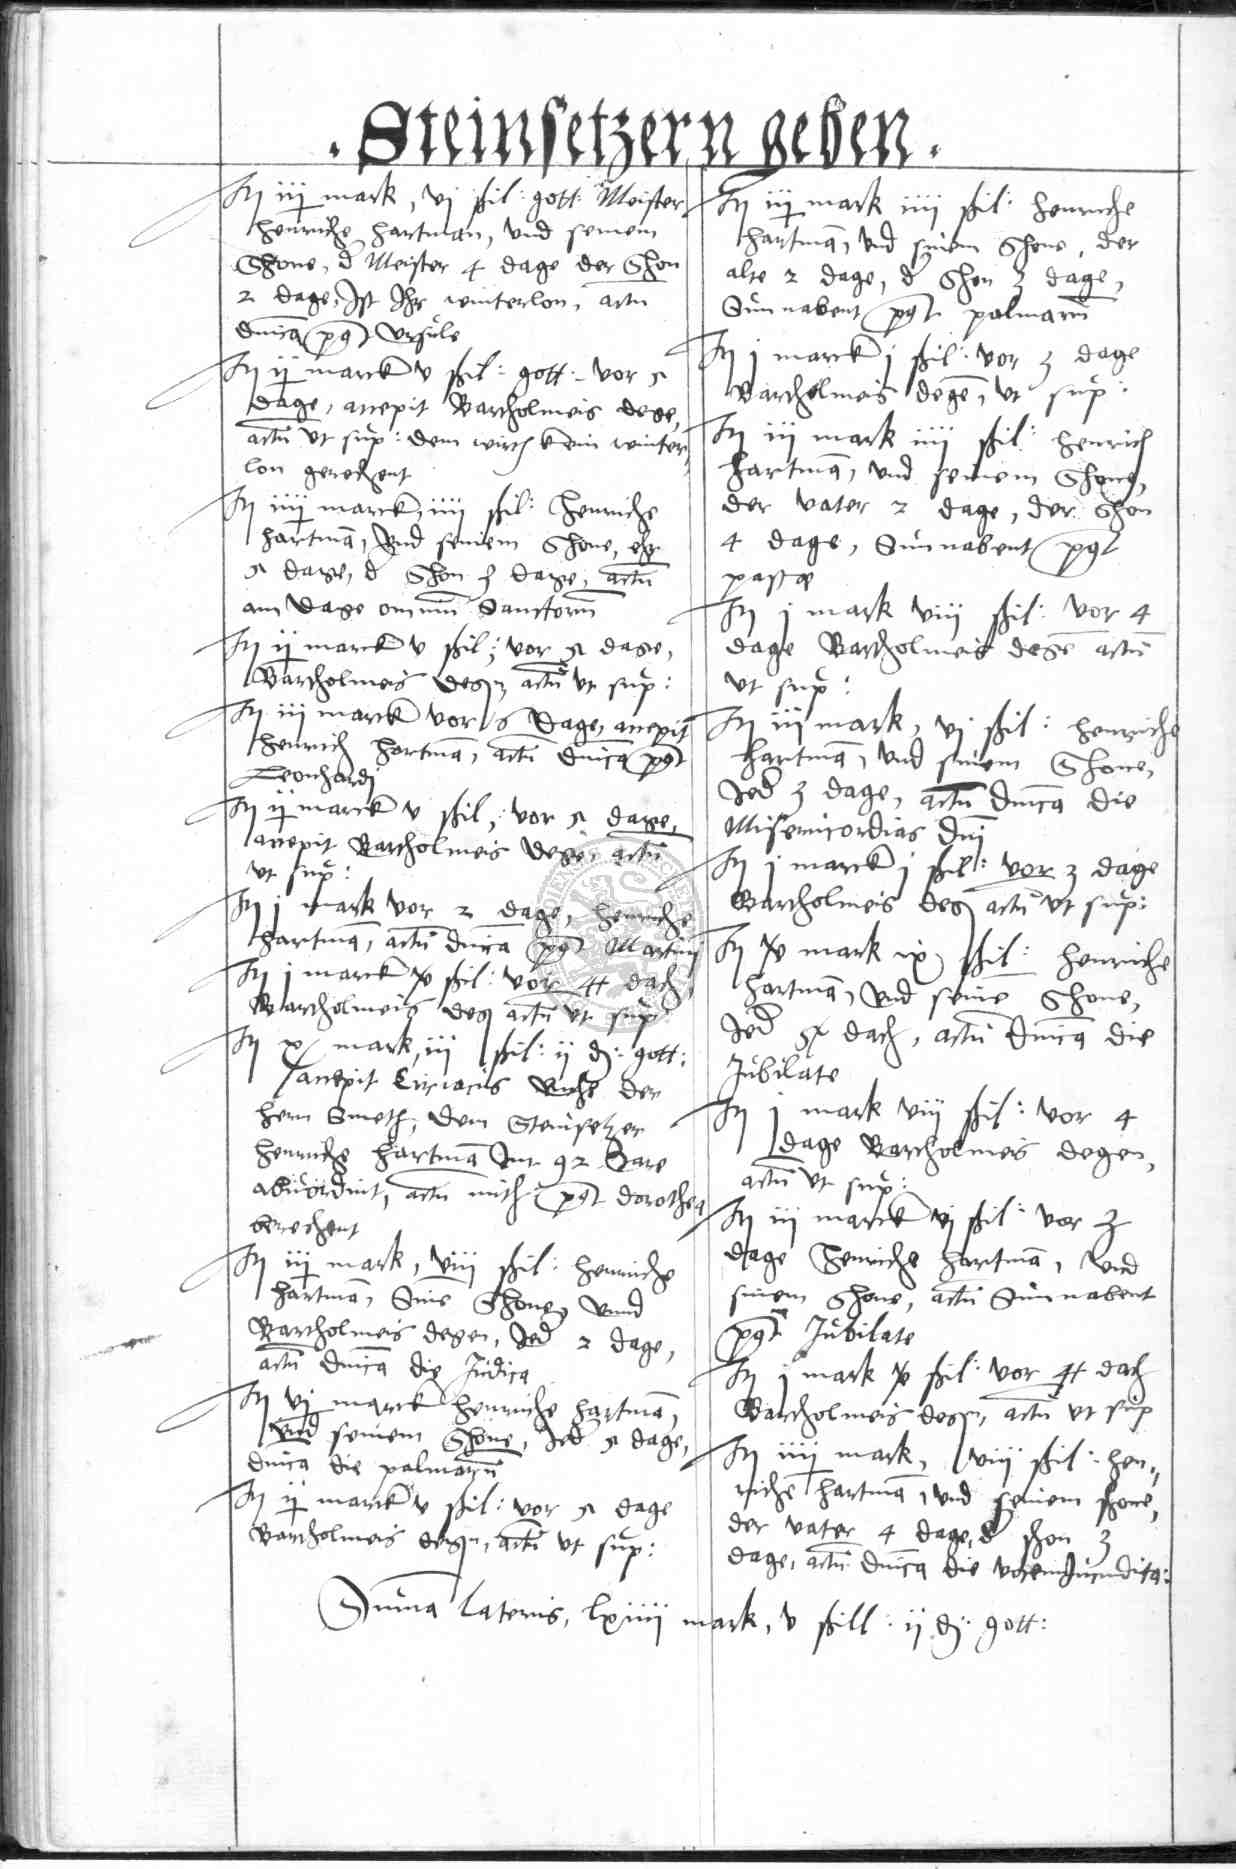 . Steinsetzern geben .
iij mark, vj ßil: gott: Meister
Henriche Hartman, vnd seinem
Shone, d Meister 4 dage der Shon
2 dage, Ist Ihr winterlon, actu
dnica pqt Vrsule
ij marck v ßil: gott: vor 5
dage, accepit Bartholmeis dege,
actu vt sup: dem wirth kein winter
lon gerechent
iiij marck, iiij ßil: Henriche
Hartma, vnd seniem Shone,
5 dage, d Shon 3 dage, actu
am dage omniu Sanctoru
ij marck v ßil; vor 5 dage,
Bartholmeis deg actu vt sup:
iij marck vor 6 dage, accepit
Henrich Hartma, actu dnica pqt
Leonhardj
ij marck v ßil, vor 5 dage,
accepit Bartholmeis dege, actu
vt sup:
j mark vor 2 dage, Henriche
Hartma, actu dnica pqt Martinj
j marck x ßil: vor 4 dach,
Bartholmeis deg actu vt sup
x mark, iij ßil: ij d: gott:
accepit Ciriacus der
hern Smeth, dem Steinsetzer
Henriche Hartma Im 92 Jare
actu mith: pqt dorothea
berechent
iij mark, viij ßil: Henriche
Hartma, Sine Shone, vnnd
Bartholmeis degen, Jed 2 dage,
actu dnica die Judica
vj marck Henriche Hartma,
vnd seinem Shone, Jed 5 dage,
dnica die palmaru
ij marck v ßil: vor 5 dage
Bartholmeis deg, actu vt sup:
iij mark iiij ßil: Henriche
Hartma, vnd sinem Shone, der
alte 2 dage, d Shon 3 dage,
Sunnabent pqt palmaru
j marck j ßil: vor 3 dage
Bartholmeis dege, vt sup:
iij mark iiij ßil: Henrich
Hartma, vnd seinem Shone,
der vater 2 dage, der Shon
4 dage, Sunnabent pqt
pasce
j mark viij ßil: vor 4
dage Bartholmeis dege actu
vt sup:
iij mark, vj ßil: Henriche
Hartma, vnd sinem Shone,
Jed 3 dage, actu dnica die
Misericordias dni
j marck j ßil: vor 3 dage
Bartholmeis deg actu vt sup:
v mark ix ßil: Henriche
Hartma, vnd seine Shone,
Jed dach, actu dnica die
Jubilate
j mark viij ßil: vor 4
dage Bartholmeis degen,
actu vt sup:
iij marck vj ßil: vor 3
dage Henriche Hartma, vnd
sinem Shone, actu Sunnabent
pqt Jubilate
j mark x ßil: vor 4 dach
Bartholmeis deg, actu vt sup
iiij mark, viij ßil: Hen,,
riche Hartma, vnd seinem shone,
der vater 4 dage, d shon 3
dage, actu dnica die vocem Jucundita:
Suma lateris, lxiiij mark, v ßill: ij d: gott: